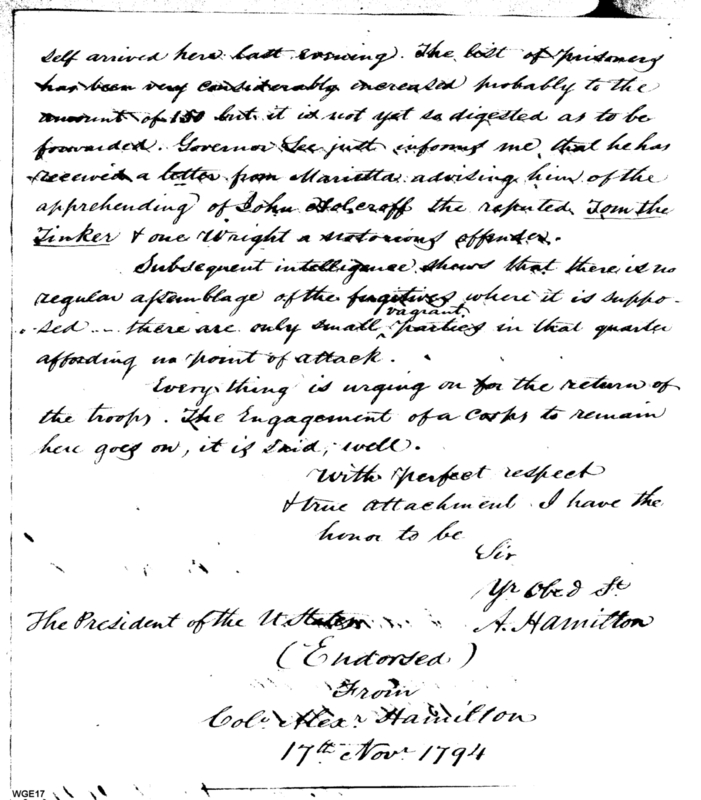 self arrived here last evening. The list of prisoners
has been very considerably increased probably to the
amount of 150 but it is not yet so digested as to be
forwarded. Governor Lee just informs me that he has
received a letter from Marietta advising him of the
apprehending of John Holcroff the reputed Tom the
Tinker & one Wright a notorious offender.
Subsequent intelligence shows that there is no
regular assemblage of the fugitives where it is suppo-
sed – there are only small vagrant parties in that quarter
affording no point of attack.
Every thing is urging on for the return of
the troops. The Engagement of a Corps to remain
here goes on, it is said, well.
With perfect respect
& true attachment I have the
honor to be
Sir
Yr Obed St
The President of the U States A. Hamilton
(Endorsed)
From
Colo Alexr Hamilton
17th Novr 1794
WGE17